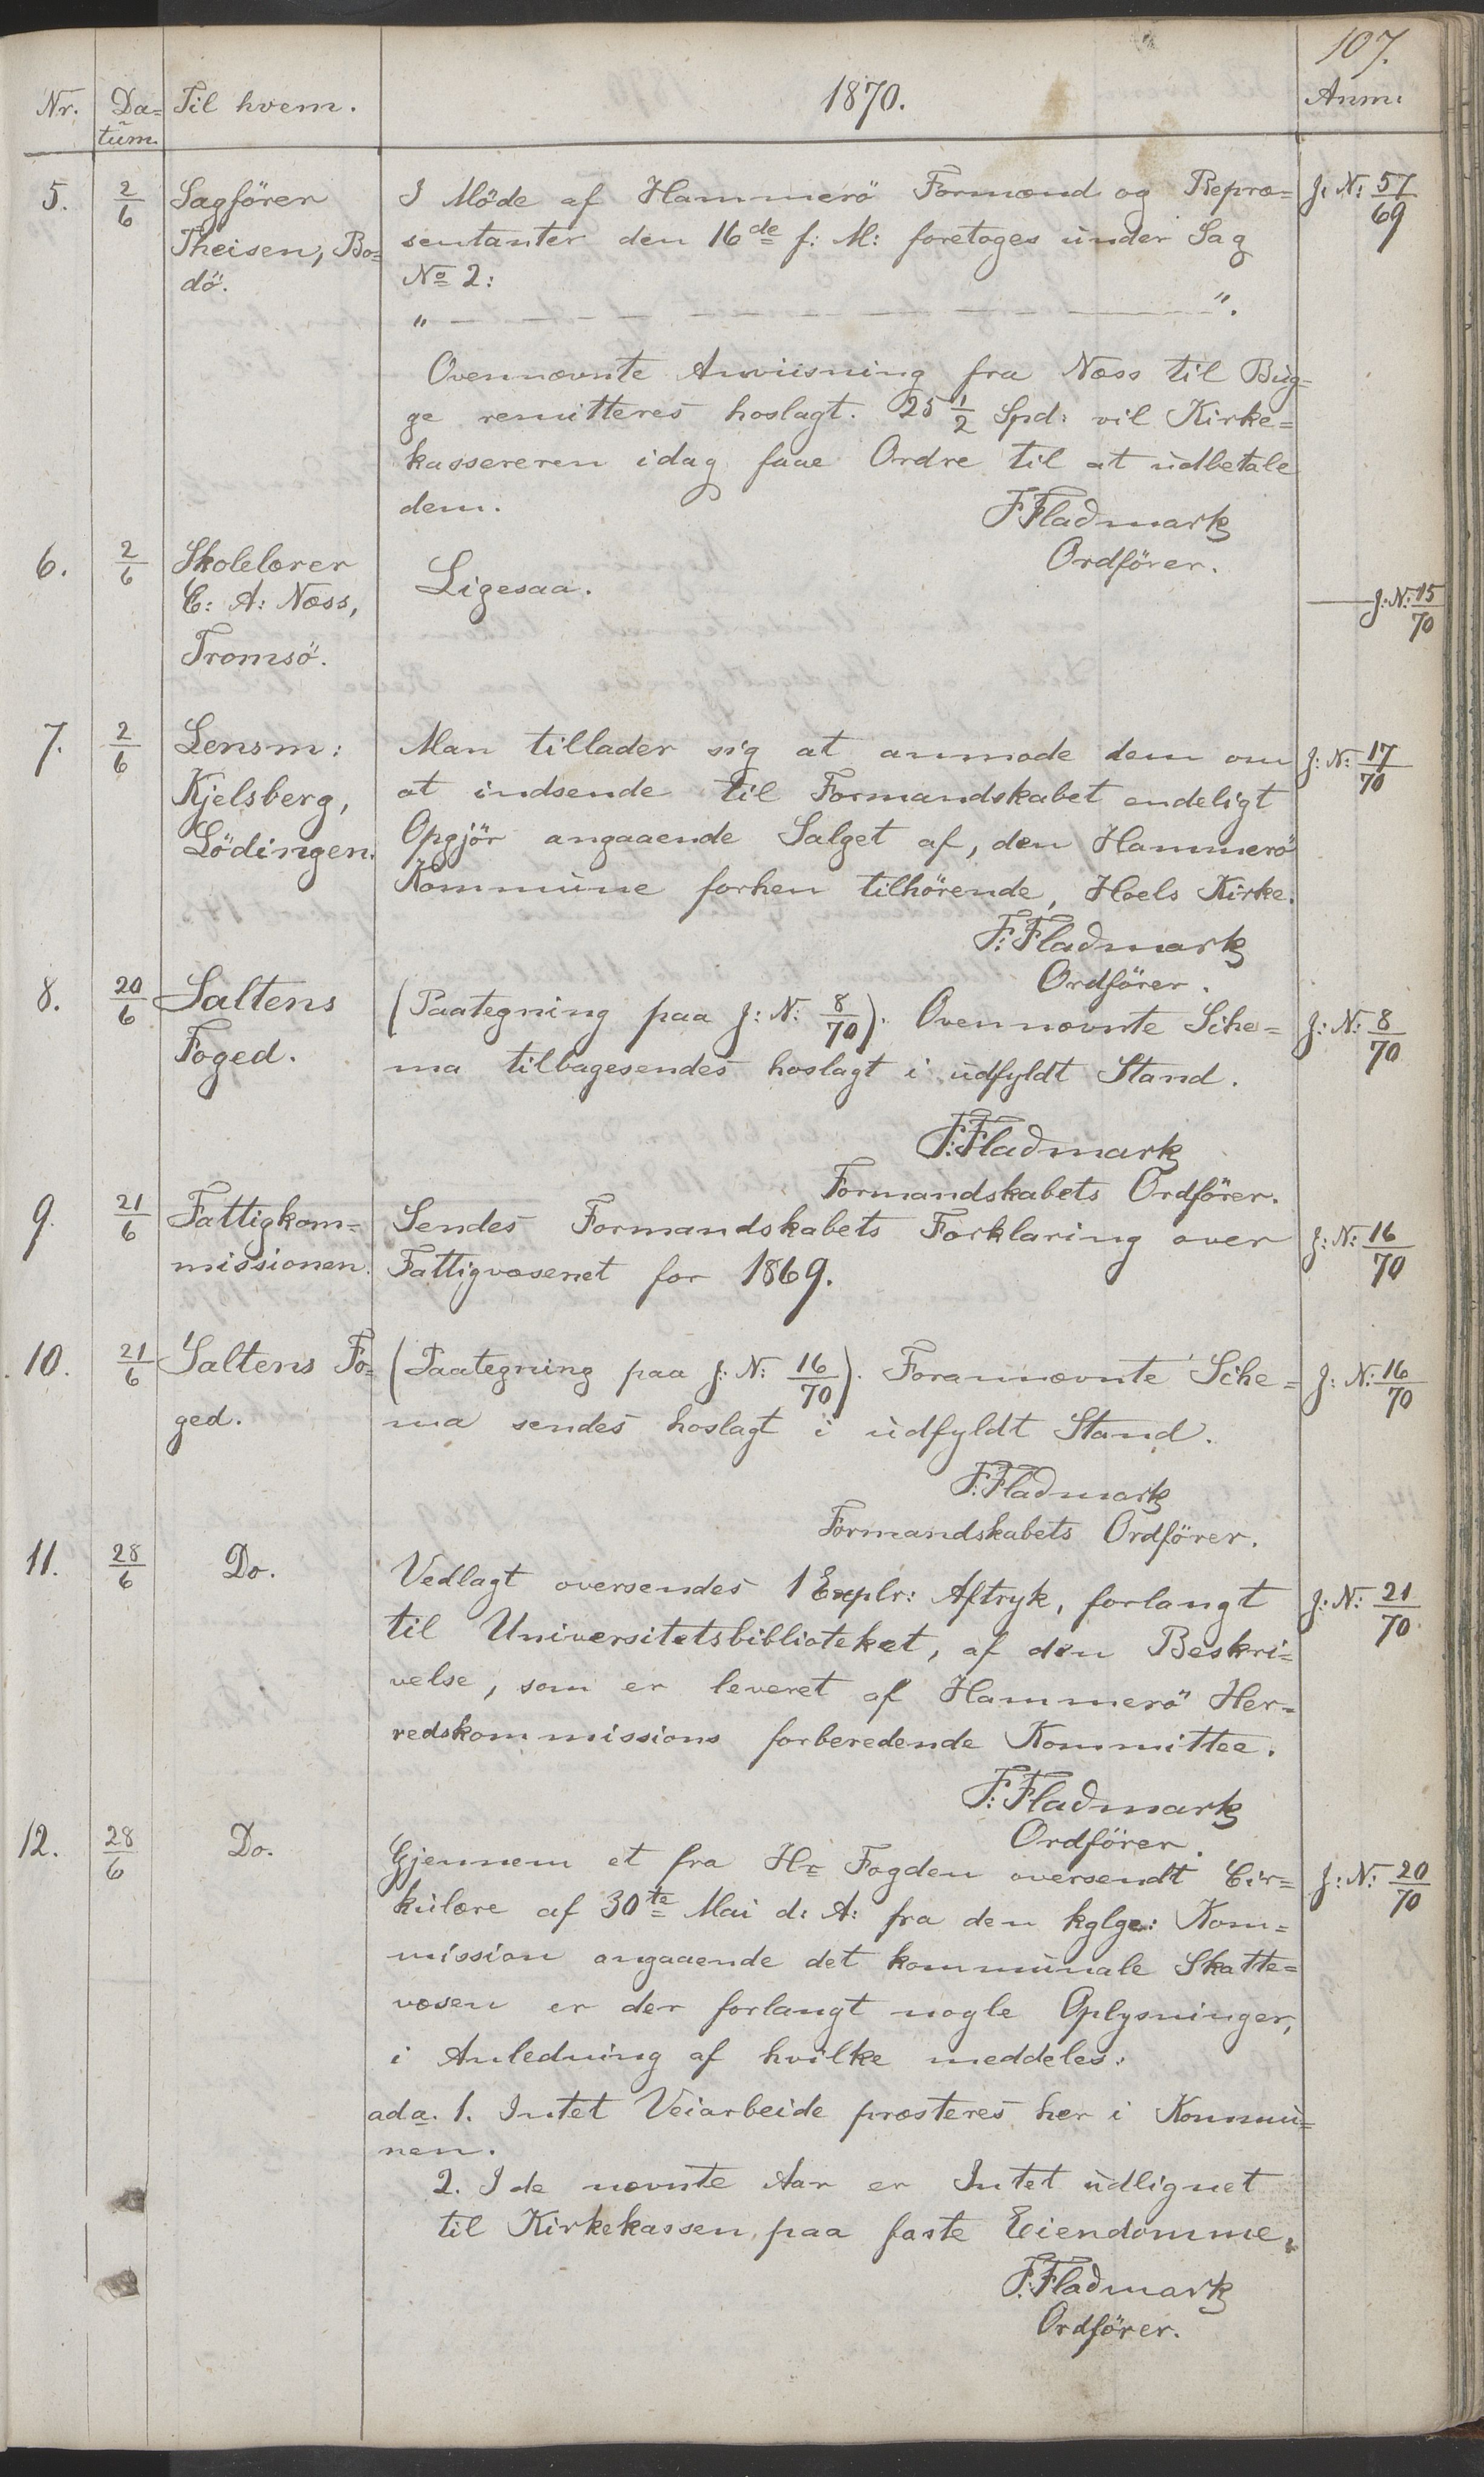 107.
Nr. Da=tum. Til hvem. 1870. Anm:
5. 2/6 Sagförer Theisen, Bo=dö.
I Möde af Hammerö Formænd og Repræ=
sentanter den 16de f: M: foretoges under Sag
No 2:
" — — — — — — — — ".
Ovennævnte Anviisning fra Næss til Bug=
ge remitteres hoslagt. 25 1/2 Spd: vil Kirke=
kassereren idag faae Ordre til at udbetale
dem.
F. Fladmark
Ordförer.
J: N: 57/69
6. 2/6 Skolelærer C: A: Næss, Tromsö.
Ligesaa.
J: N: 15/70
7. 2/6 Lensm: Kjelsberg, Lödingen.
Man tillader sig at anmode dem om
at indsende til Formandskabet endeligt
Opgjör angaaende Salget af, den Hammerö
Kommune forhen tilhörende, Hoels Kirke.
F: Fladmark
Ordförer.
J: N: 17/70
8. 20/6 Saltens Foged.
(Paategning paa J: N: 8/70). Ovennævnte Sche=
ma tilbagesendes hoslagt i udfyldt Stand.
F: Fladmark
Formandskabets Ordförer.
J: N: 8/70
9. 21/6 Fattigkom=missionen.
Sendes Formandskabets Forklaring over
Fattigvæsenet for 1869.
J: N: 16/70
10. 21/6 Saltens Fo=ged.
(Paategning paa J: N: 16/70). Forannævnte Sche=
ma sendes hoslagt i udfyldt Stand.
F. Fladmark
Formandskabets Ordförer.
J: N: 16/70
11. 28/6 Do.
Vedlagt oversendes 1 Explr: Aftryk, forlangt
til Universitetsbiblioteket, af den Beskri=
velse, som er leveret af Hammerö Her=
redskommissions forberedende Kommittee.
F: Fladmark
Ordförer.
J: N: 21/70
12. 28/6 Do.
Gjennem et fra Hr Fogden oversendt Cir=
kulære af 30te Mai d: A: fra den kglge: Kom=
mission angaaende det kommunale Skatte=
væsen er der forlangt nogle Oplysninger,
i Anledning af hvilke meddeles:
ad a. 1. Intet Veiarbeide præsteres her i Kommu=
nen.
2. I de nævnte Aar er Intet udlignet
til Kirkekassen paa faste Eiendomme.
F: Fladmark
Ordförer.
J: N: 20/70